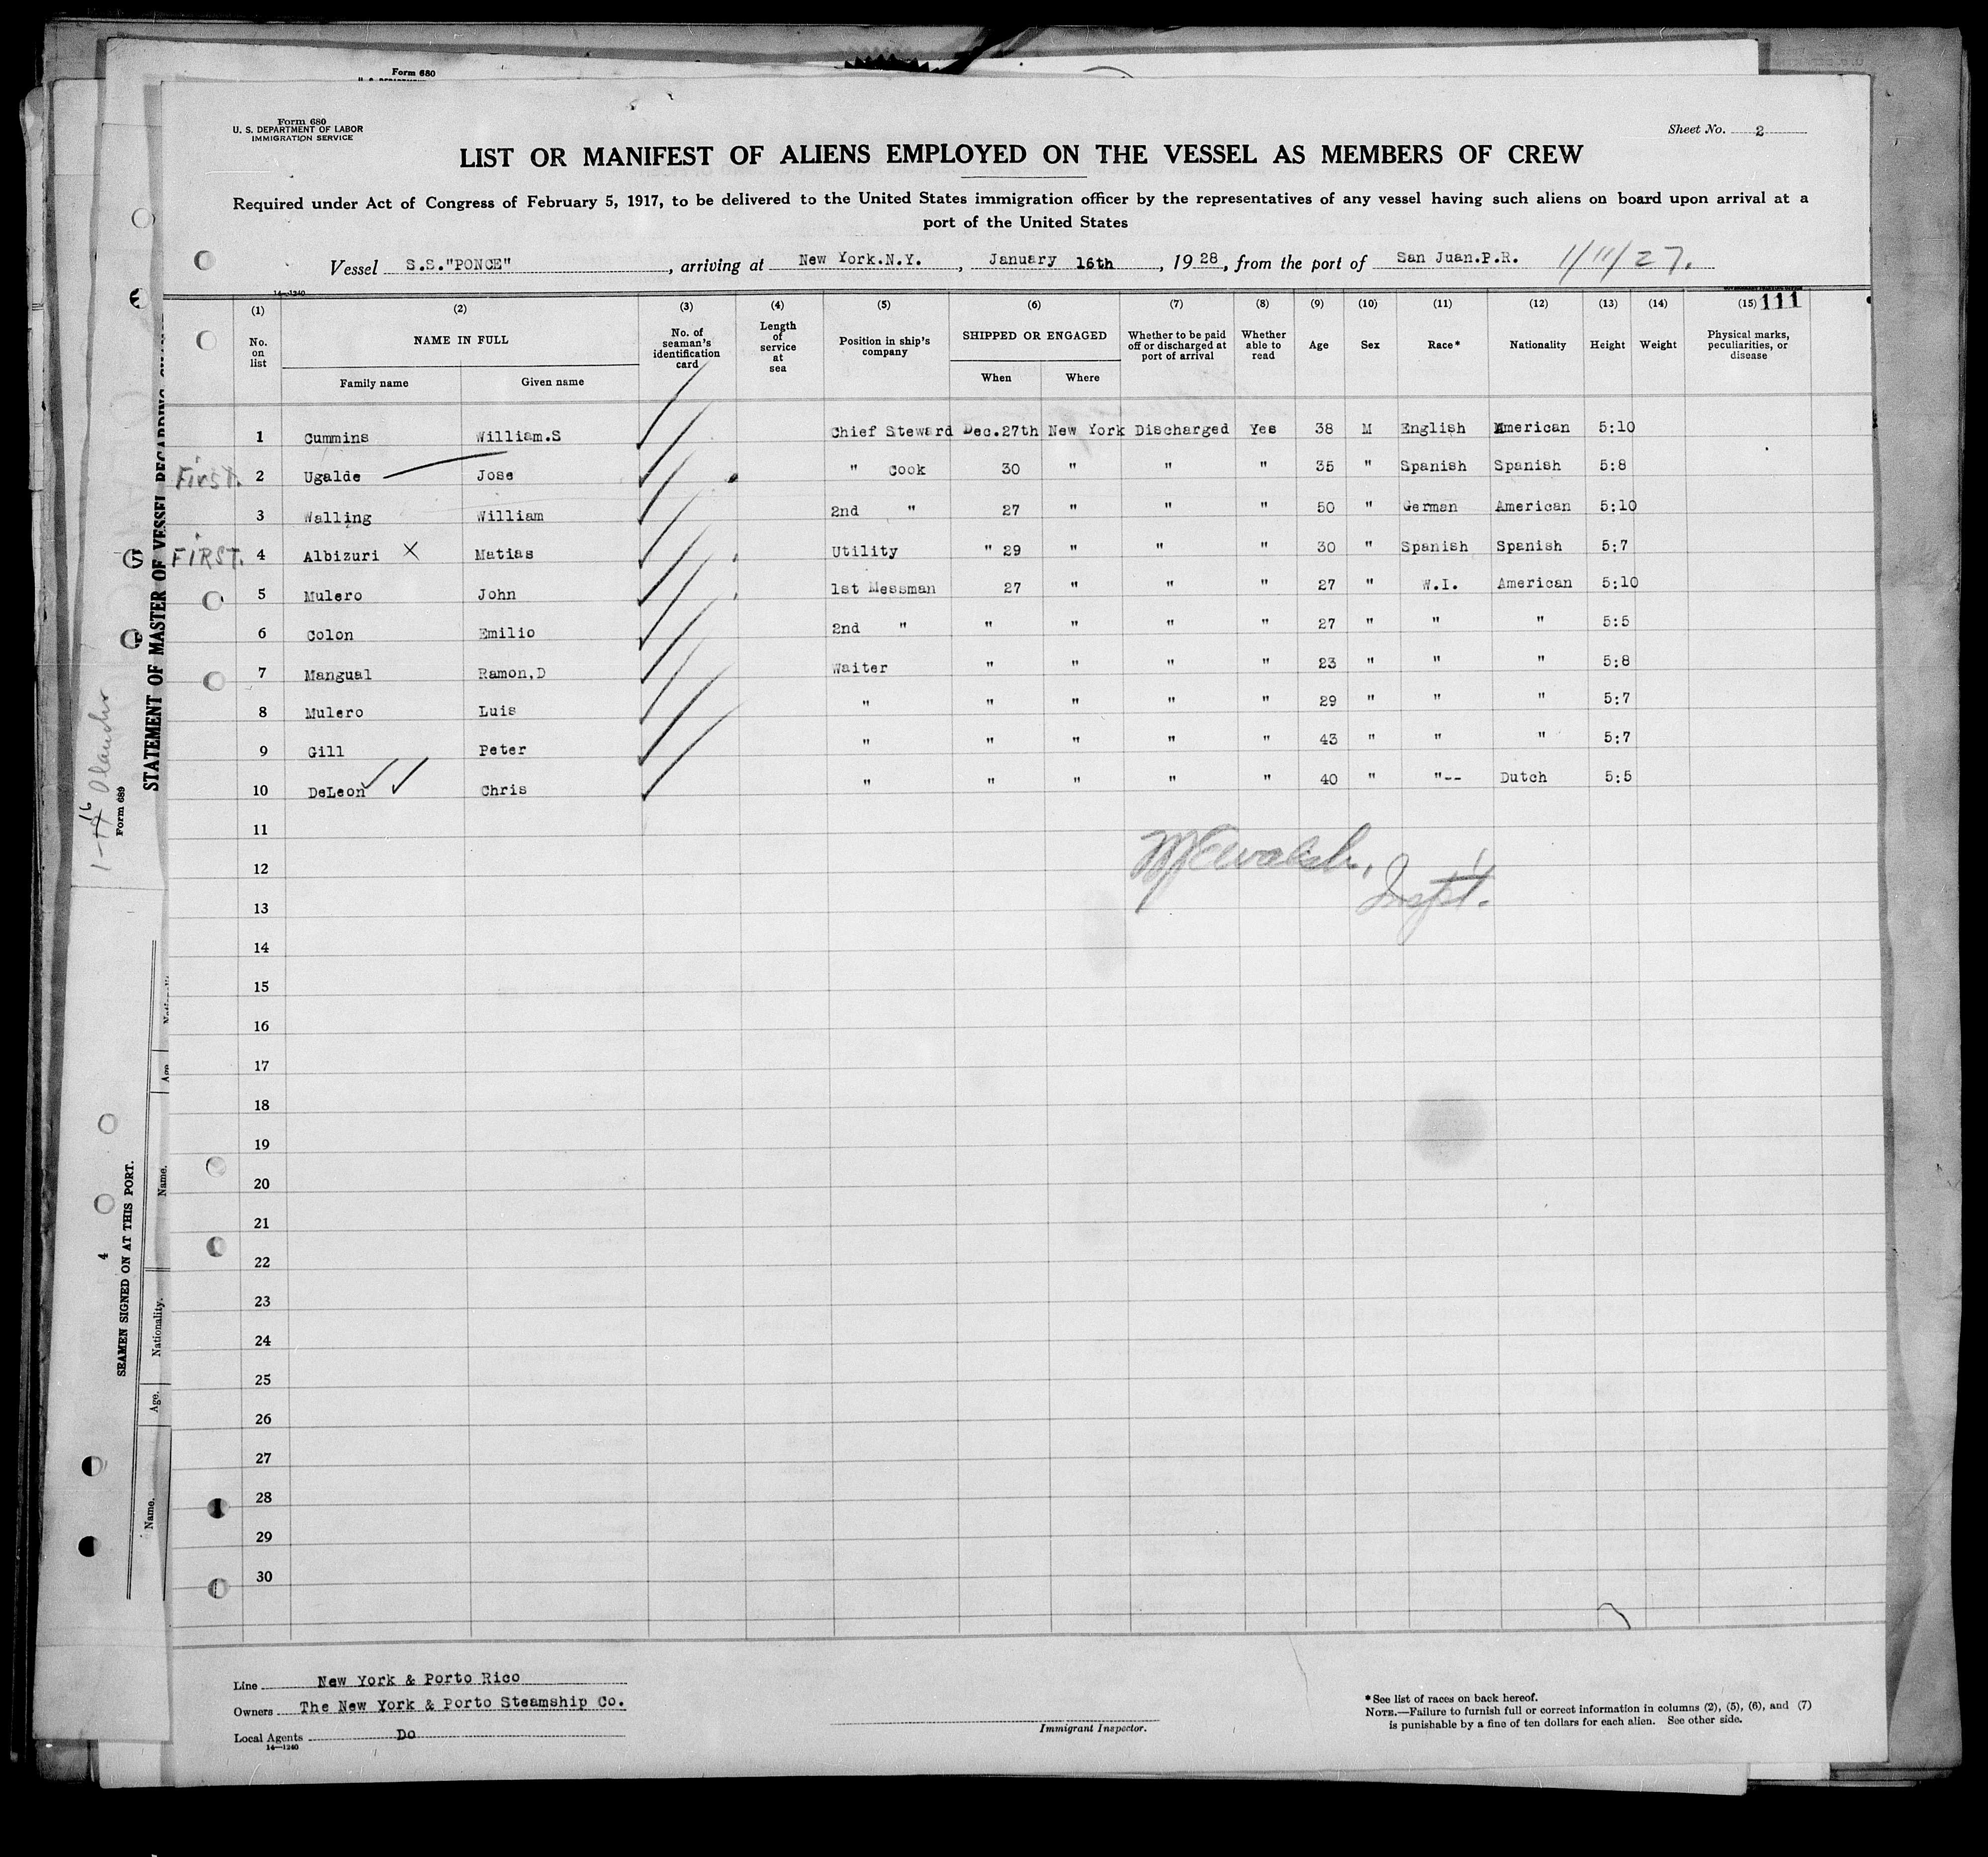 Form 680
Form 680
U. S. DEPARTMENT OF LABOR
IMMIGRATION SERVICE
Sheet No. 2
LIST OR MANIFEST OF ALIENS EMPLOYED ON THE VESSEL AS MEMBERS OF CREW
Required under Act of Congress of February 5, 1917, to be delivered to the United States immigration officer by the representatives of any vessel having such aliens on board upon arrival at a
port of the United States
Vessel S.S."PONCE", arriving at New York.N.Y., January 16th, 1928, from the port of San Juan.P.R. 1/11/27.
14—1240
(1) (2) (3) (4) (5) (6) (7) (8) (9) (10) (11) (12) (13) (14) (15) 111
No. on list NAME IN FULL Family name Given name No. of seaman's identification card Length of service at sea Position in ship's company SHIPPED OR ENGAGED When Where Whether to be paid off or discharged at port of arrival Whether able to read Age Sex Race* Nationality Height Weight Physical marks, peculiarities, or disease
1 Cummins William.S Chief Steward Dec.27th New York Discharged Yes 38 M English American 5:10
First. 2 Ugalde Jose " Cook 30 " " " 35 " Spanish Spanish 5:8
3 Walling William 2nd " 27 " " " 50 " German American 5:10
FIRST. 4 Albizuri X Matias Utility " 29 " " " 30 " Spanish Spanish 5:7
5 Mulero John 1st Messman 27 " " " 27 " W.I. American 5:10
6 Colon Emilio 2nd " " " " " 27 " " " 5:5
7 Mangual Ramon,D Waiter " " " " 23 " " " 5:8
8 Mulero Luis " " " " " 29 " " " 5:7
9 Gill Peter " " " " " 43 " " " 5:7
10 DeLeon Chris " " " " " 40 " "-- Dutch 5:5
11
12
13
14
15
16
17
18
19
20
21
22
23
24
25
26
27
28
29
30
Inspt.
Line New York & Porto Rico
Owners The New York & Porto Steamship Co.
Local Agents Do
14—1240
Immigrant Inspector.
*See list of races on back hereof.
NOTE.—Failure to furnish full or correct information in columns (2), (5), (6), and (7)
is punishable by a fine of ten dollars for each alien. See other side.
STATEMENT OF MASTER OF VESSEL REGARDING
Form 689
SEAMEN SIGNED ON AT THIS PORT.
4
Name.
Age.
Nationality.
Name.
Age